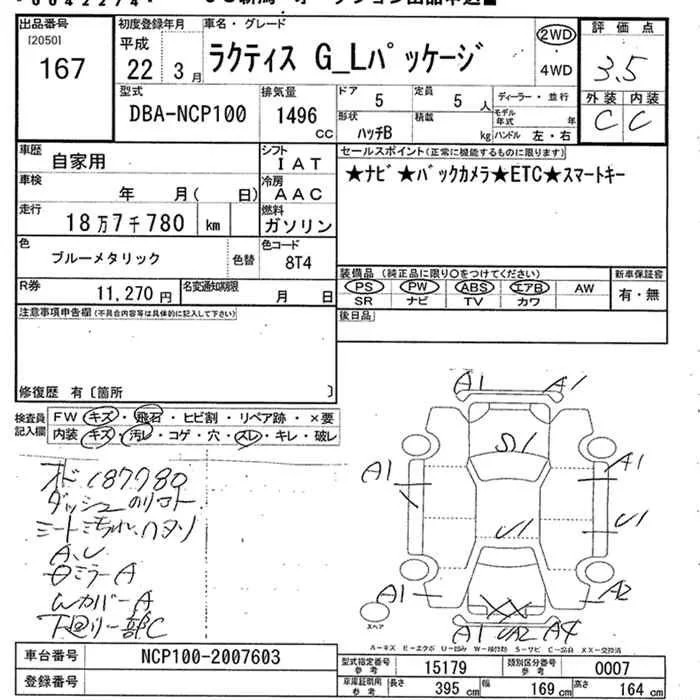 出品番号
[2050]
167
初度登録年月
平成
22 3月
車名・グレード
ラクティス G_Lパッケージ
2WD
4WD
評価点
3.5
外装 内装
C C
型式
DBA-NCP100
排気量
1496 cc
ドア
5
定員
5人
ディーラー・並行
形状
ハッチB
積載
kg
モデル年式 年
ハンドル 左・右
車歴
自家用
シフト
IAT
車検
年 月( 日)
冷房
AAC
走行
18万7千780 km
燃料
ガソリン
色
ブルーメタリック
色替
色コード
8T4
R券
11,270円
名変通知期限
月 日
セールスポイント(正常に機能するものに限ります)
★ナビ★バックカメラ★ETC★スマートキー
装備品(純正品に限り○をつけてください)
PS PW ABS エアB AW
SR ナビ TV カワ
新車保証書
有・無
後日品
注意事項申告欄(不具合内容等は具体的に記入して下さい)
修復歴 有〔箇所 〕
検査員記入欄
FW キズ・飛石・ヒビ割・リペア跡・×要
内装 キズ・汚レ・コゲ・穴・スレ・キレ・破レ
オド187780
ダッシュ
A.U
ミラーA
WカバーA
下回り一部C
A1 A1
S1
A1 A1
U1
U1
A1 A2
XX
A1 UA2 A4
スペア
A－キズ E－エクボ U－凹み S－サビ XX－交換済
車台番号
NCP100-2007603
登録番号
型式指定番号 参考
15179
類別区分番号 参考
0007
車庫証明用 参考
長さ 395 cm
幅 169 cm
高さ 164 cm